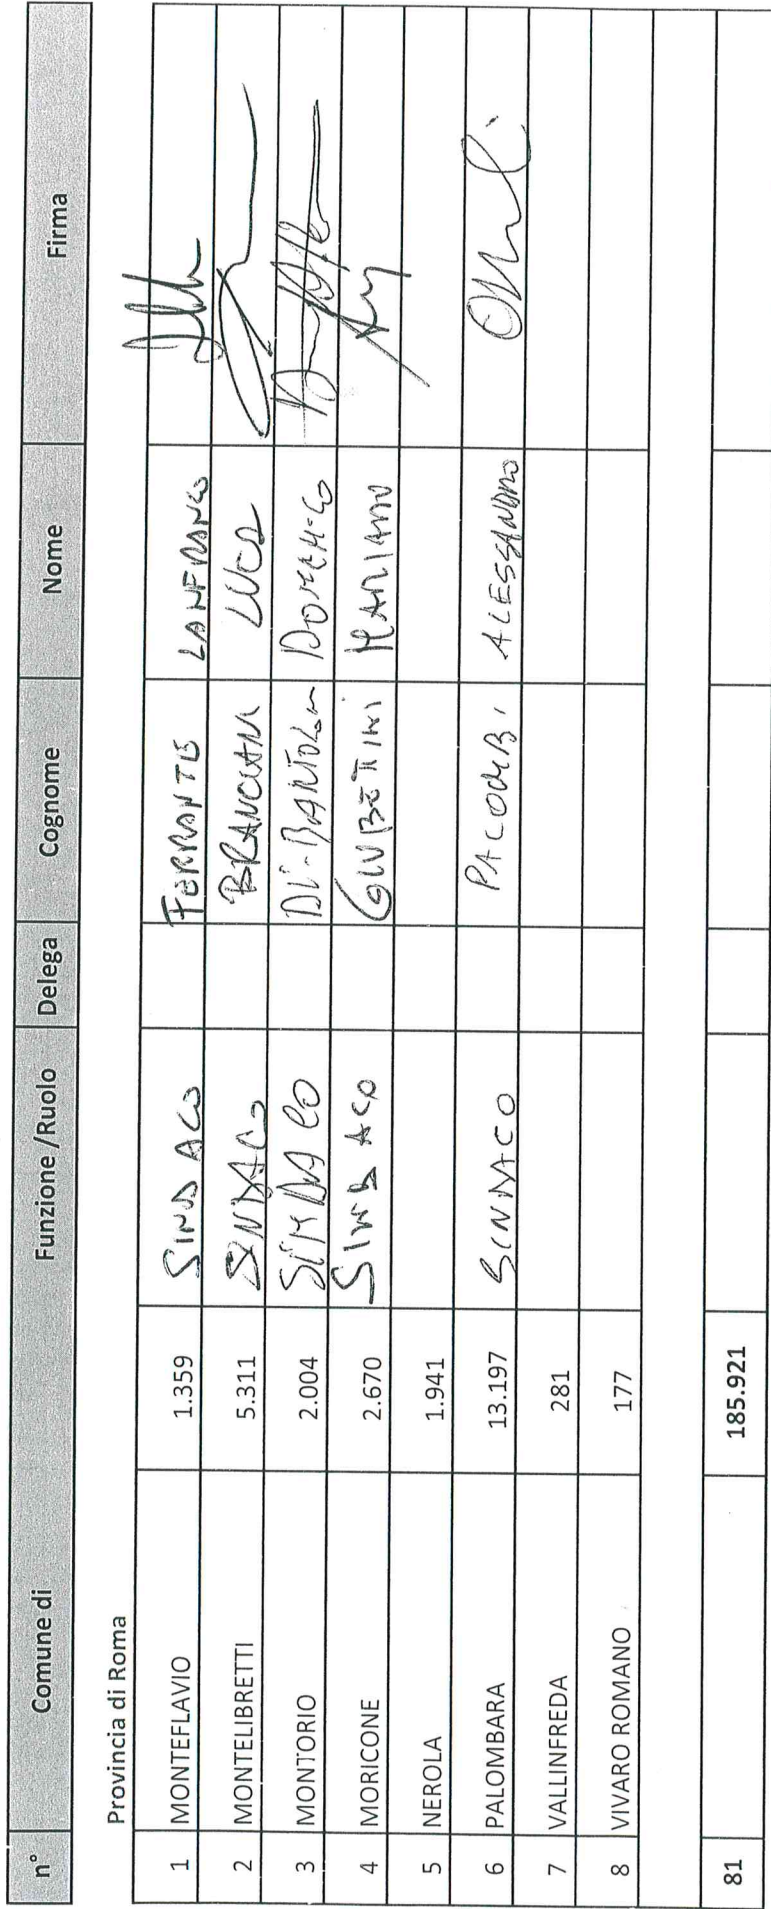 n° Comune di Funzione /Ruolo Delega Cognome Nome Firma
Provincia di Roma
1 MONTEFLAVIO 1.359 SINDACO FERRANTE LANFRANCO
2 MONTELIBRETTI 5.311 SINDACO BRANCIANI LUCA
3 MONTORIO 2.004 SINDACO DI-BARTOLOM DOMENICO
4 MORICONE 2.670 SINDACO GIUBETTINI MARIANO
5 NEROLA 1.941
6 PALOMBARA 13.197 SINDACO PALOMBI ALESSANDRO
7 VALLINFREDA 281
8 VIVARO ROMANO 177
81 185.921